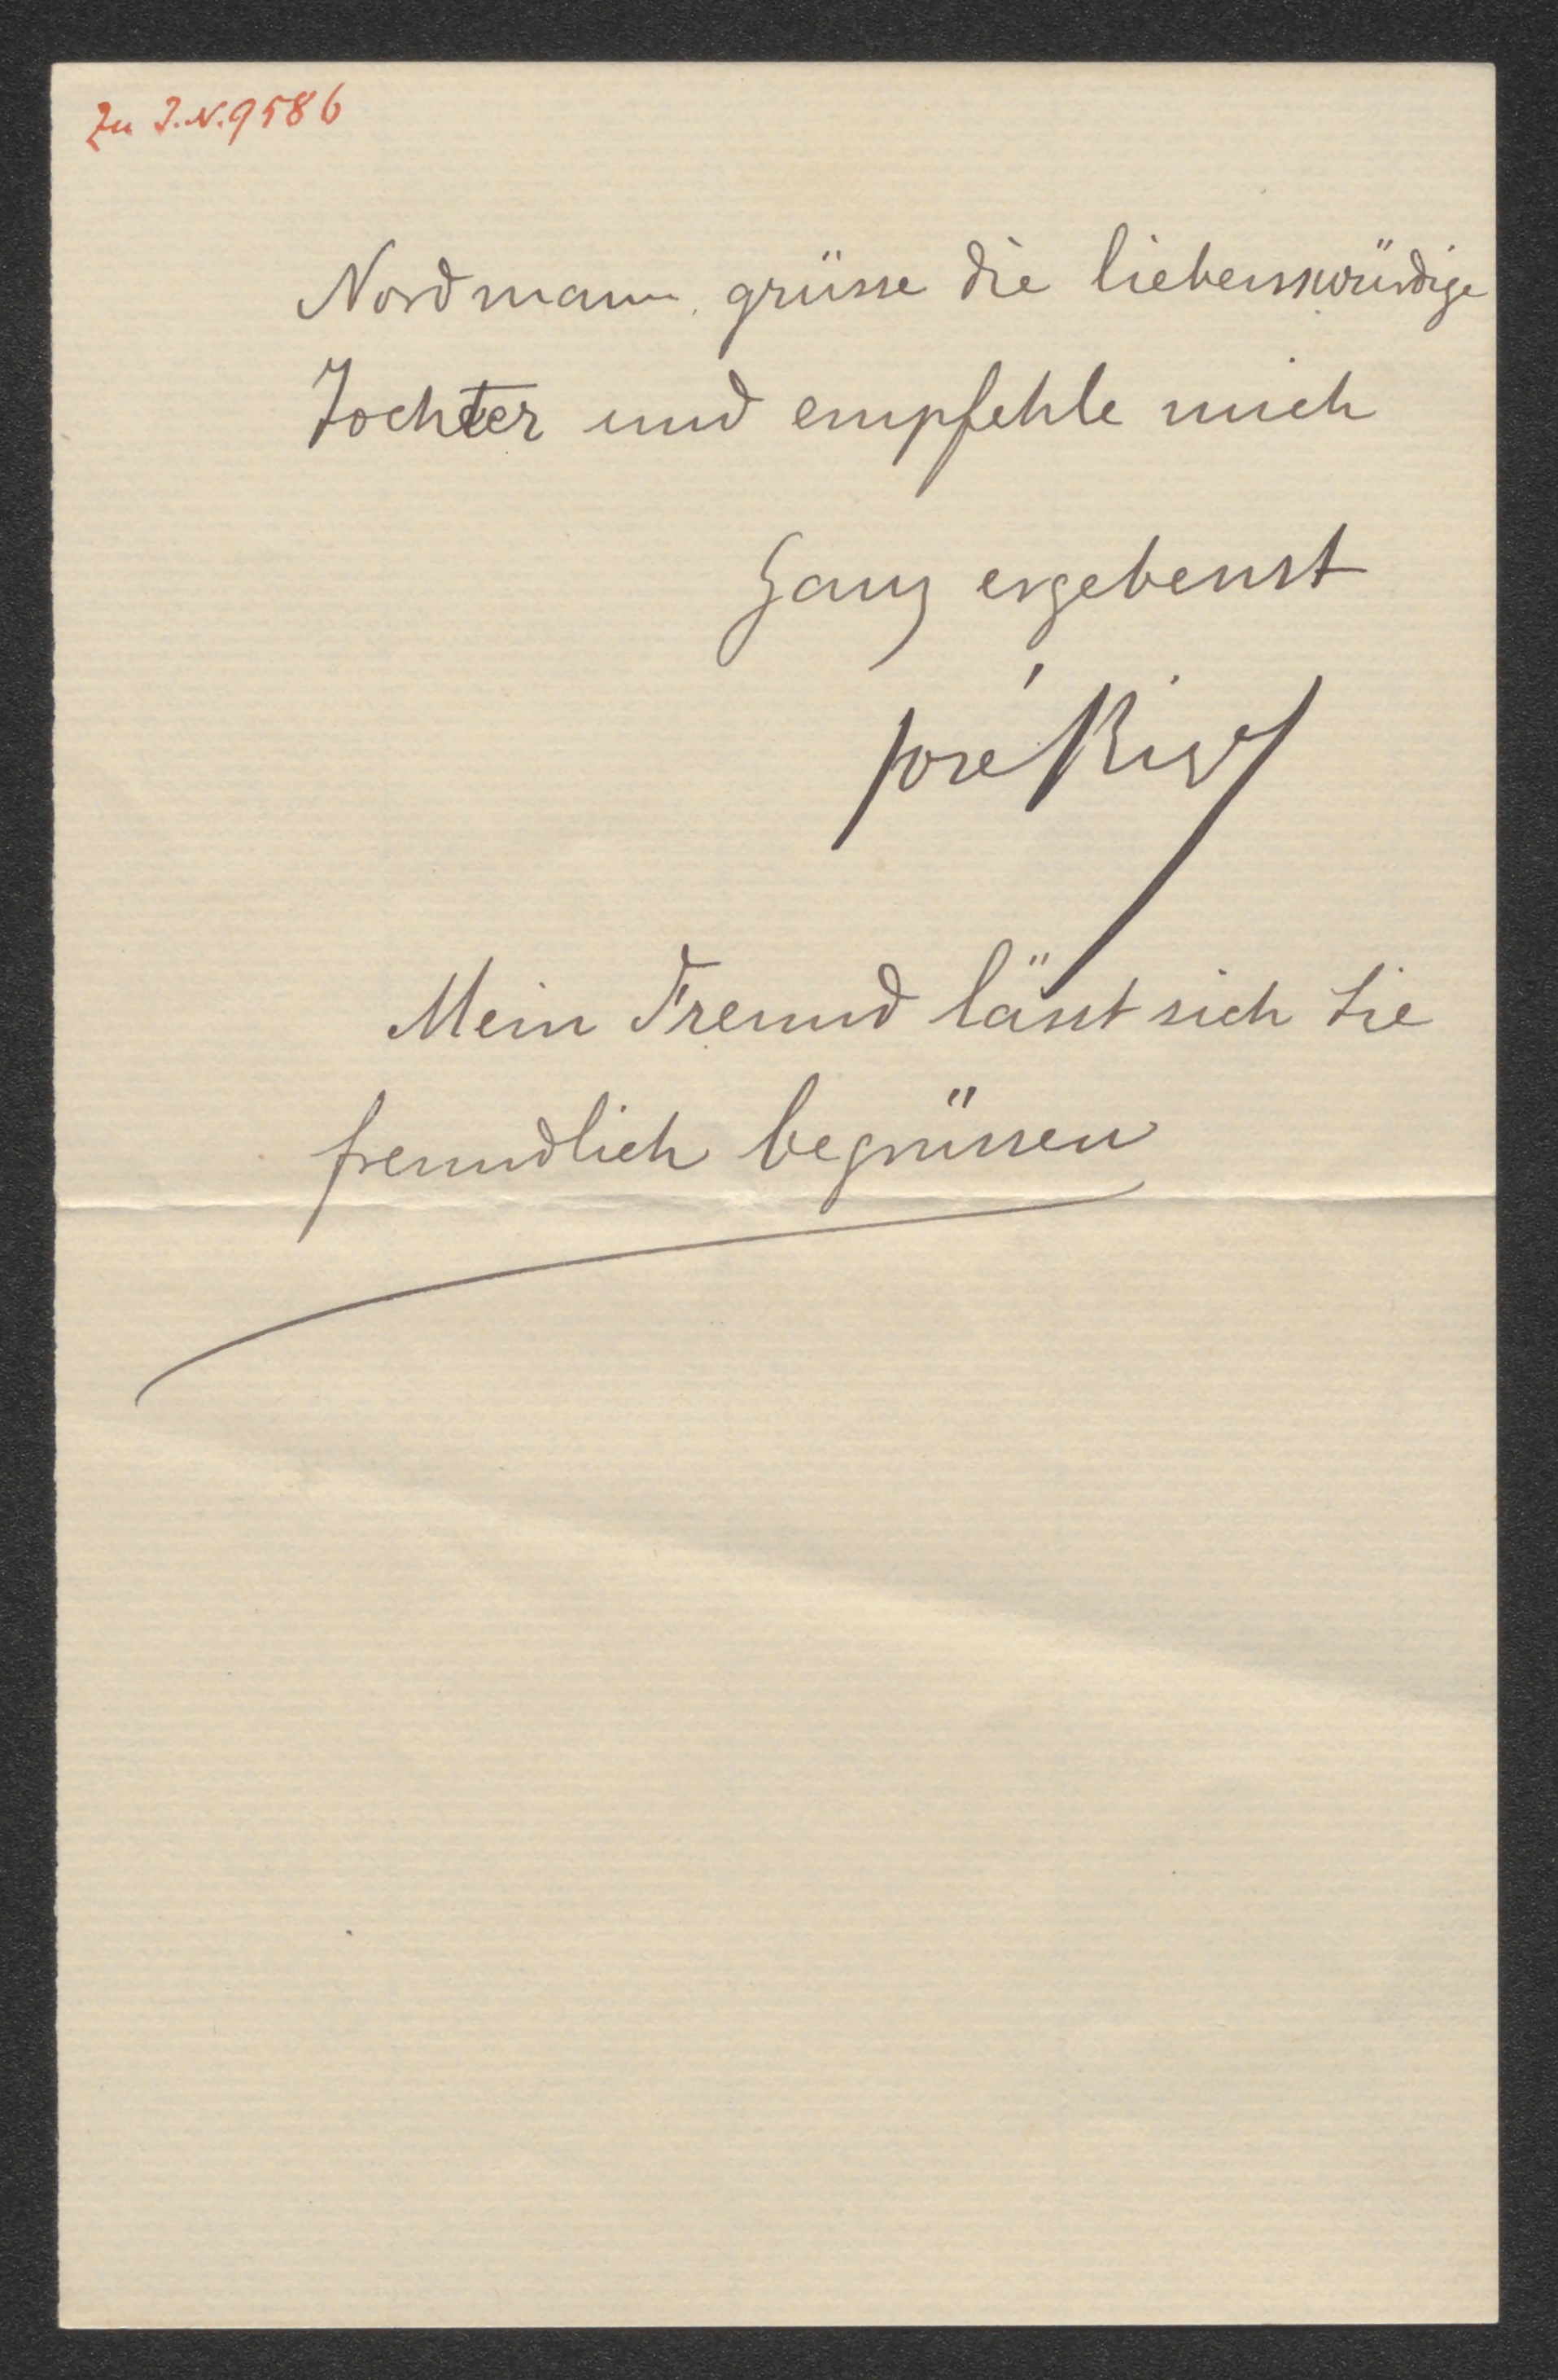 Zu I.N. 9586
Nordmann, grüsse die liebenswürdige
Tochter und empfehle mich
Ganz ergebenst
José
Mein Freund lässt sich Sie
freundlich begrüssen